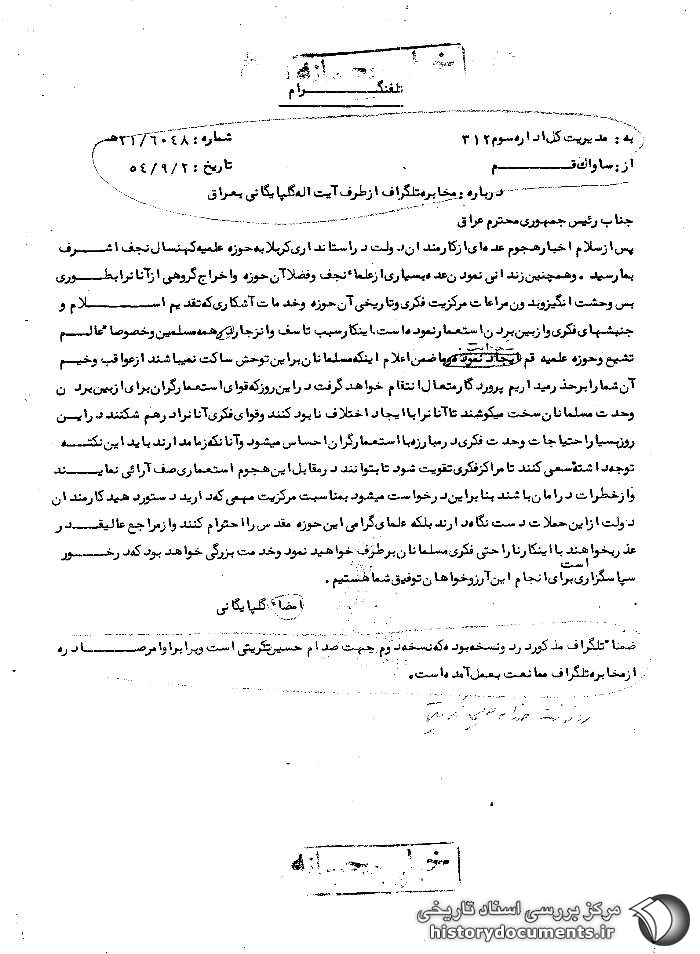 خیلی محرمانه
تلفنگرام
به : مدیریت کل اداره سوم ۳۱۲
شماره : ۲۱/۶۰۴۸ هـ
از : ساواک قم
تاریخ : ۵۴/۹/۲
درباره : مخابره تلگراف از طرف آیت اله گلپایگانی بعراق
جناب رئیس جمهوری محترم عراق
پس از سلام اخبار هجوم عده ای از کارمندان دولت در استانداری کربلا به حوزه علمیه کهنسال نجف اشرف
بما رسید . و همچنین زندانی نمودن عده بسیاری از علماء نجف و فضلا آن حوزه و اخراج گروهی از آنانرا بطوری
بس وحشت انگیز و بدون مراعات مرکزیت فکری و تاریخی آن حوزه و خدمات آشکاری که تقدیم اسلام و
جنبشهای فکری و از بین بردن استعمار نموده است . اینکار سبب تاسف و انزجار همه مسلمین و خصوصا عالم
تشیع و حوزه علمیه قم ایجاد نموده ما ضمن اعلام اینکه مسلمانان بر این توحش ساکت نمیباشند از عواقب وخیم
آن شما را بر حذر میداریم پروردگار متعال انتقام خواهد گرفت در این روز که قوای استعمارگران برای از بین بردن
وحدت مسلمانان سخت میکوشند تا آنانرا با ایجاد اختلاف نابود کنند و قوای فکری آنانرا درهم شکنند در این
روز بسیار احتیاجات وحدت فکری در مبارزه با استعمارگران احساس میشود و آنانکه زمامدارند باید این نکته
توجه داشته سعی کنند تا مراکز فکری تقویت شود تا بتوانند در مقابل این هجوم استعماری صف آرائی نمایند
و از خطرات در امان باشند بنابر این درخواست میشود بمناسبت مرکزیت مهمی که دارید دستور دهید کارمندان
دولت از این حملات دست نگاه دارند بلکه علمای گرامی این حوزه مقدس را احترام کنند و از مراجع عالیقدر
عذر بخواهند با اینکار ناراحتی فکری مسلمانان برطرف خواهید نمود و خدمت بزرگی خواهد بود که در خور
است
سپاسگزاری برای انجام این آرزو خواهان توفیق شما هستیم .
امضاء گلپایگانی
ضمنا" تلگراف مذکور در دو نسخه بوده که نسخه دوم جهت صدام حسین تکریتی است و برابر اوامر صادره
از مخابره تلگراف ممانعت بعمل آمده است .
خیلی محرمانه
مرکز بررسی اسناد تاریخی
historydocuments.ir